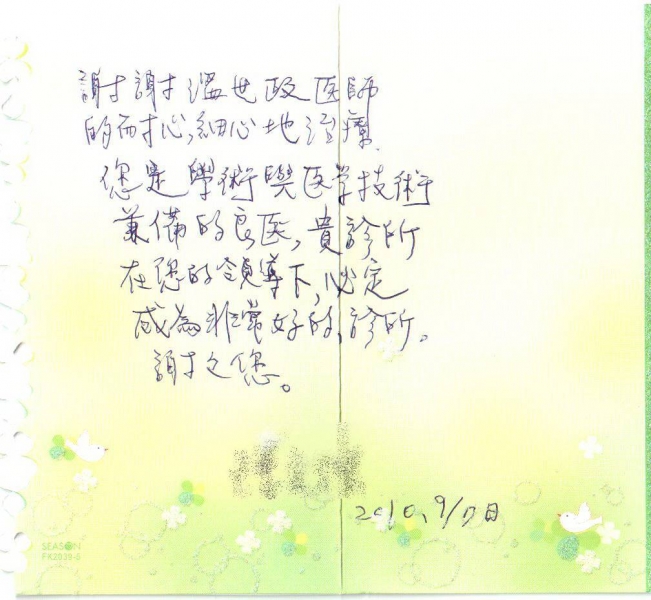 謝謝溫世政医師
的耐心,細心地治療.
您是學術與医学技術
兼備的良医,貴診所
在您的領導下,必定
成為非常好的診所。
謝々您。
2010.9/7日
SEASON
PK2039-8